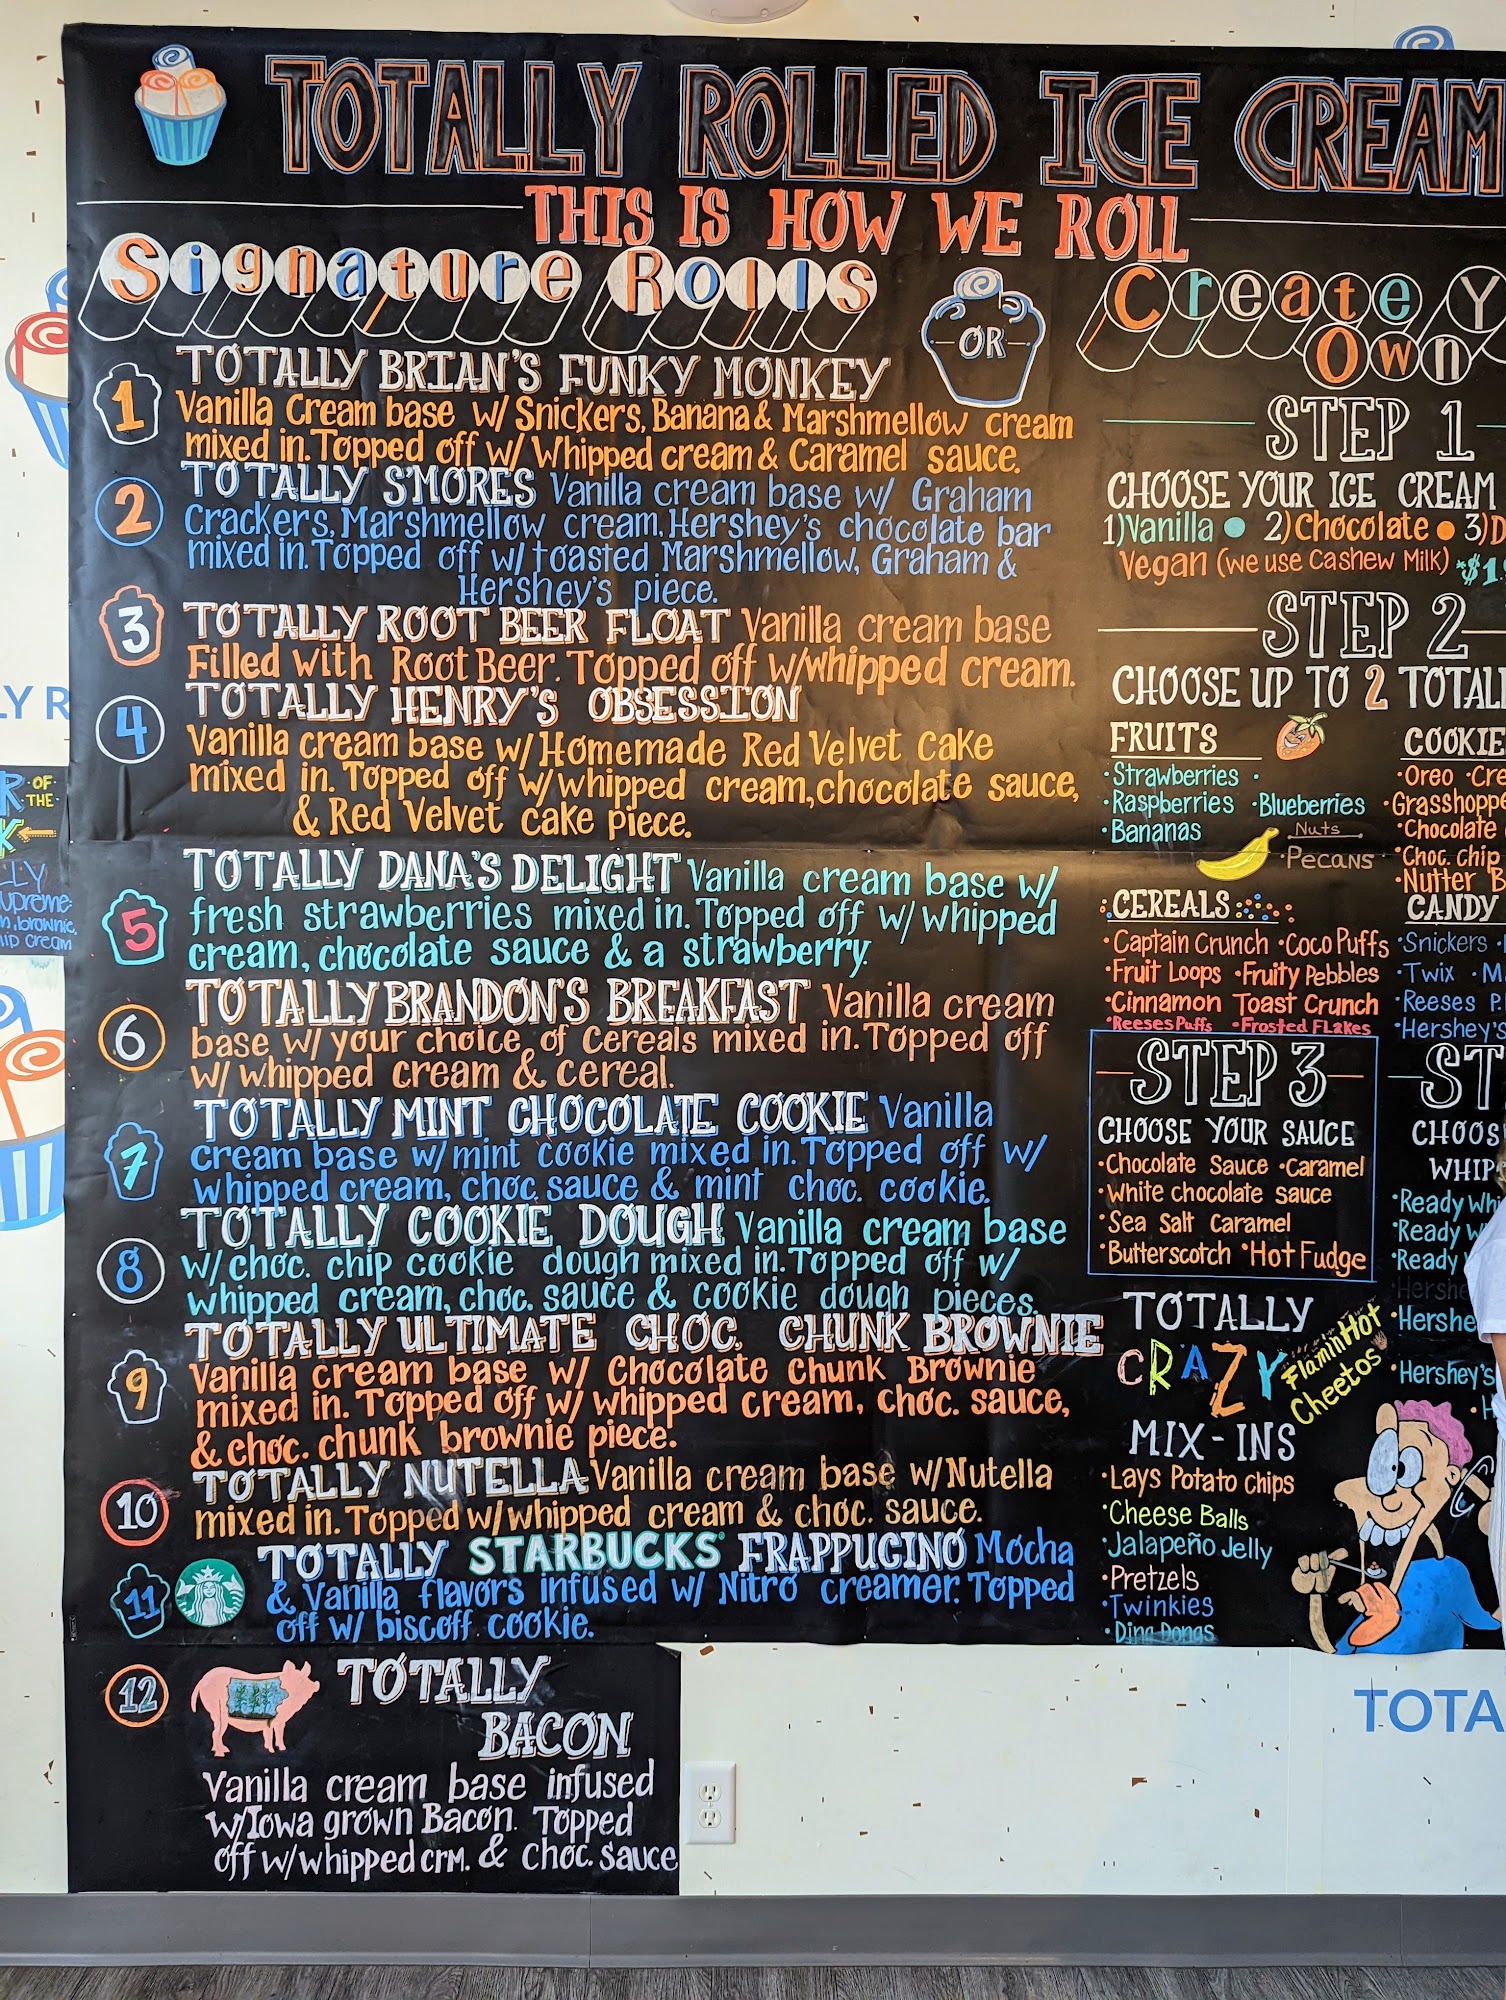 TOTALLY ROLLED ICE CREAM
THIS IS HOW WE ROLL
Signature Rolls
1 TOTALLY BRIAN'S FUNKY MONKEY
Vanilla Cream base w/ Snickers, Banana & Marshmellow cream
mixed in. Topped off w/ Whipped cream & Caramel sauce.
2 TOTALLY S'MORES Vanilla cream base w/ Graham
Crackers, Marshmellow cream, Hershey's chocolate bar
mixed in. Topped off w/ toasted Marshmellow, Graham &
Hershey's piece.
3 TOTALLY ROOT BEER FLOAT Vanilla cream base
Filled with Root Beer. Topped off w/whipped cream.
4 TOTALLY HENRY'S OBSESSION
Vanilla cream base w/ Homemade Red Velvet Cake
mixed in. Topped off w/ whipped cream, chocolate sauce,
& Red Velvet cake piece.
5 TOTALLY DANA'S DELIGHT Vanilla cream base w/
fresh strawberries mixed in. Topped off w/ whipped
cream, chocolate sauce & a strawberry.
6 TOTALLY BRANDON'S BREAKFAST Vanilla cream
base w/ your choice of Cereals mixed in. Topped off
w/ whipped cream & cereal.
7 TOTALLY MINT CHOCOLATE COOKIE Vanilla
cream base w/ mint cookie mixed in. Topped off w/
whipped cream, choc sauce & mint choc. cookie.
8 TOTALLY COOKIE DOUGH Vanilla cream base
w/ choc. chip cookie dough mixed in. Topped off w/
whipped cream, choc. sauce & cookie dough pieces.
9 TOTALLY ULTIMATE CHOC. CHUNK BROWNIE
Vanilla cream base w/ Chocolate Chunk Brownie
mixed in. Topped off w/ whipped cream, choc. sauce,
& choc. chunk brownie piece.
10 TOTALLY NUTELLA Vanilla cream base w/ Nutella
mixed in. Topped w/ whipped cream & choc. sauce.
11 TOTALLY STARBUCKS FRAPPUCINO Mocha
& Vanilla flavors infused w/ Nitro creamer. Topped
off w/ biscoff cookie.
12 TOTALLY
BACON
Vanilla cream base infused
w/Iowa grown Bacon. Topped
off w/whipped crm. & choc. sauce
OR
Create Y
Own
STEP 1
CHOOSE YOUR ICE CREAM
1) Vanilla • 2) Chocolate • 3) D
Vegan (we use Cashew Milk) *$1.
STEP 2
CHOOSE UP TO 2 TOTAL
FRUITS
• Strawberries •
• Raspberries • Blueberries
• Bananas
Nuts
• Pecans
COOKIE
• Oreo • Cre
• Grasshoppe
• Chocolate
• Choc. Chip
• Nutter B
CEREALS
• Captain Crunch • Coco Puffs
• Fruit Loops • Fruity Pebbles
• Cinnamon Toast Crunch
• Reeses Puffs • Frosted Flakes
CANDY
• Snickers •
• Twix • M
• Reeses P.
• Hershey's
STEP 3
CHOOSE YOUR SAUCE
• Chocolate Sauce • Caramel
• White chocolate sauce
• Sea Salt Caramel
• Butterscotch • Hot Fudge
ST
CHOOS
WHIP
• Ready Whi
• Ready W
• Ready
Hershe
• Hershe
• Hershey's
• H
TOTALLY
CRAZY
Flamin Hot
Cheetos
MIX-INS
• Lays Potato Chips
• Cheese Balls
• Jalapeño Jelly
• Pretzels
• Twinkies
• Ding Dongs
LY R
R OF
THE
K
LLY
upreme
brownie,
ip cream
TOTA